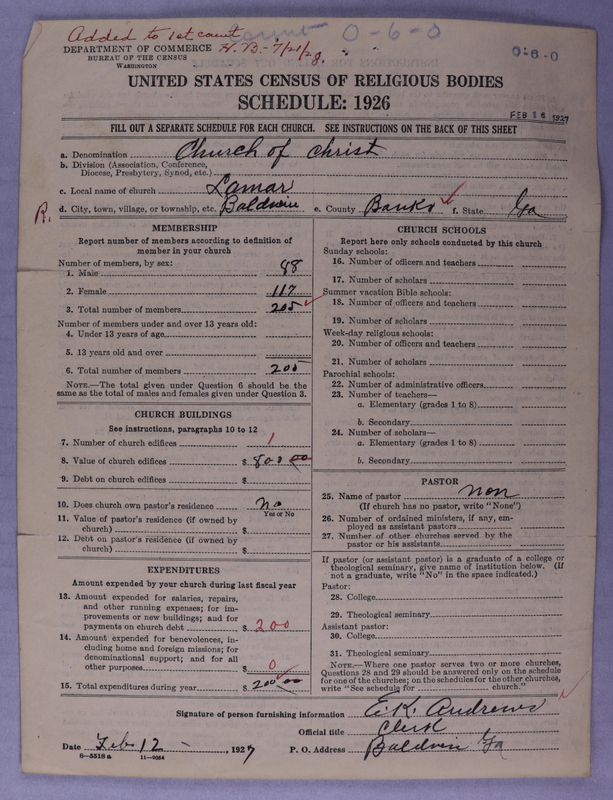 Added to 1st count
H. B. - 7/21/28.
Count 0-6-0
0-6-0
DEPARTMENT OF COMMERCE
BUREAU OF THE CENSUS
WASHINGTON
UNITED STATES CENSUS OF RELIGIOUS BODIES
SCHEDULE: 1926
FEB 16 1927
FILL OUT A SEPARATE SCHEDULE FOR EACH CHURCH. SEE INSTRUCTIONS ON THE BACK OF THIS SHEET
a. Denomination Church of Christ
b. Division (Association, Conference,
Diocese, Presbytery, Synod, etc.)
c. Local name of church Lamar
R. d. City, town, village, or township, etc. Baldwin e. County Banks f. State Ga
MEMBERSHIP
Report number of members according to definition of
member in your church
Number of members, by sex:
1. Male 88
2. Female 117
3. Total number of members 205
Number of members under and over 13 years old:
4. Under 13 years of age
5. 13 years old and over
6. Total number of members 205
NOTE.—The total given under Question 6 should be the
same as the total of males and females given under Question 3.
CHURCH BUILDINGS
See instructions, paragraphs 10 to 12
7. Number of church edifices 1
8. Value of church edifices $ 800 00
9. Debt on church edifices $
10. Does church own pastor's residence No
Yes or No
11. Value of pastor's residence (if owned by
church) $
12. Debt on pastor's residence (if owned by
church) $
EXPENDITURES
Amount expended by your church during last fiscal year
13. Amount expended for salaries, repairs,
and other running expenses; for im-
provements or new buildings; and for
payments on church debt $ 200
14. Amount expended for benevolences, in-
cluding home and foreign missions; for
denominational support; and for all
other purposes $ 0
15. Total expenditures during year $ 200 00
CHURCH SCHOOLS
Report here only schools conducted by this church
Sunday schools:
16. Number of officers and teachers
17. Number of scholars
Summer vacation Bible schools:
18. Number of officers and teachers
19. Number of scholars
Week-day religious schools:
20. Number of officers and teachers
21. Number of scholars
Parochial schools:
22. Number of administrative officers
23. Number of teachers—
a. Elementary (grades 1 to 8)
b. Secondary
24. Number of scholars—
a. Elementary (grades 1 to 8)
b. Secondary
PASTOR
25. Name of pastor non
(If church has no pastor, write "None")
26. Number of ordained ministers, if any, em-
ployed as assistant pastors
27. Number of other churches served by the
pastor or his assistants
If pastor (or assistant pastor) is a graduate of a college or
theological seminary, give name of institution below. (If
not a graduate, write "No" in the space indicated.)
Pastor:
28. College
29. Theological seminary
Assistant pastor:
30. College
31. Theological seminary
NOTE.—Where one pastor serves two or more churches,
Questions 28 and 29 should be answered only on the schedule
for one of the churches; on the schedules for the other churches,
write "See schedule for church."
Signature of person furnishing information E. K. Andrews
Official title Clerk
Date Feb 12 - , 1927 P. O. Address Baldwin Ga
8-5518a 11-9054